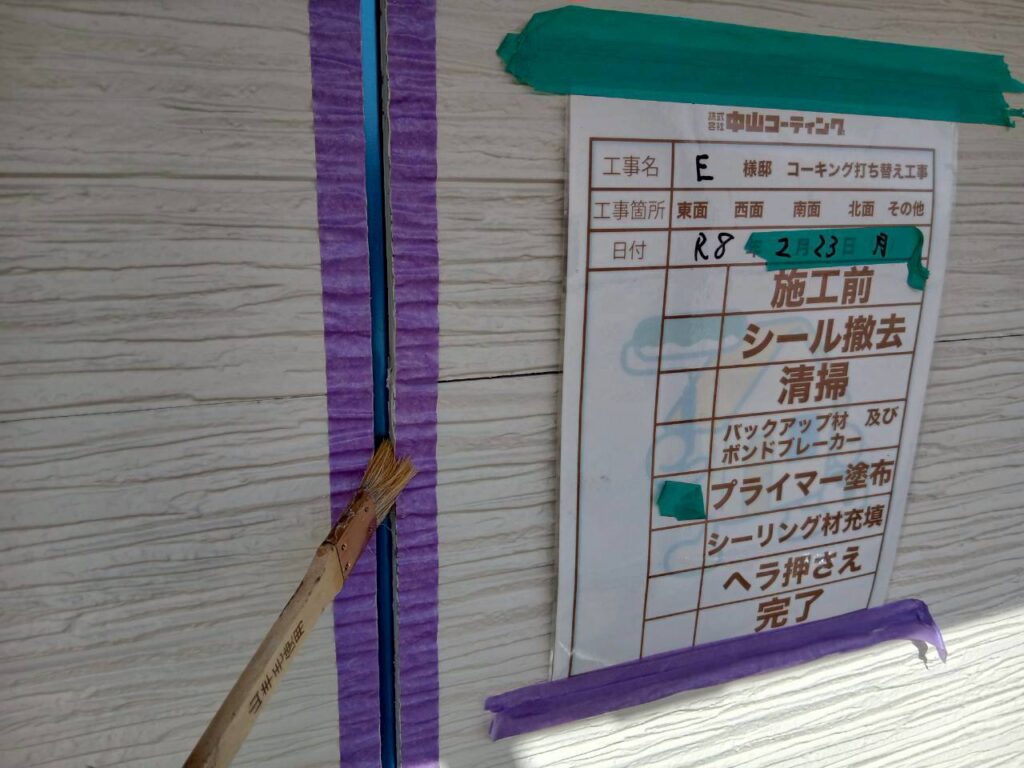 株式会社 中山コーティング
工事名 E 様邸 コーキング打ち替え工事
工事箇所 東面 西面 南面 北面 その他
日付 R8 年 2 月 23 日 月
施工前
シール撤去
清掃
バックアップ材 及び
ボンドブレーカー
プライマー塗布
シーリング材充填
ヘラ押さえ
完了